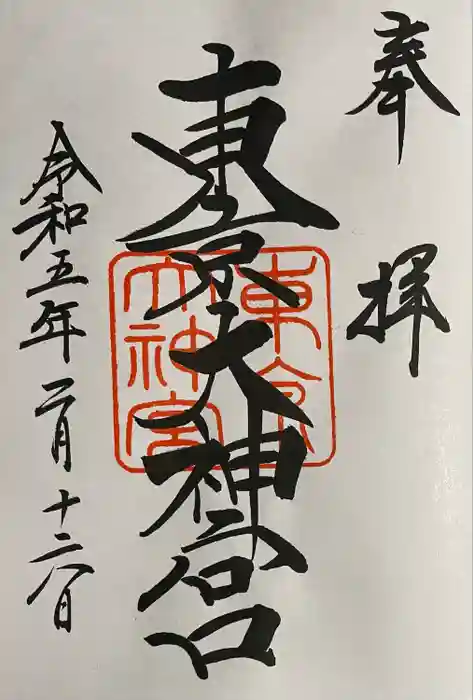 奉拝
東京大神宮
東京
大神宮
令和五年二月十六日